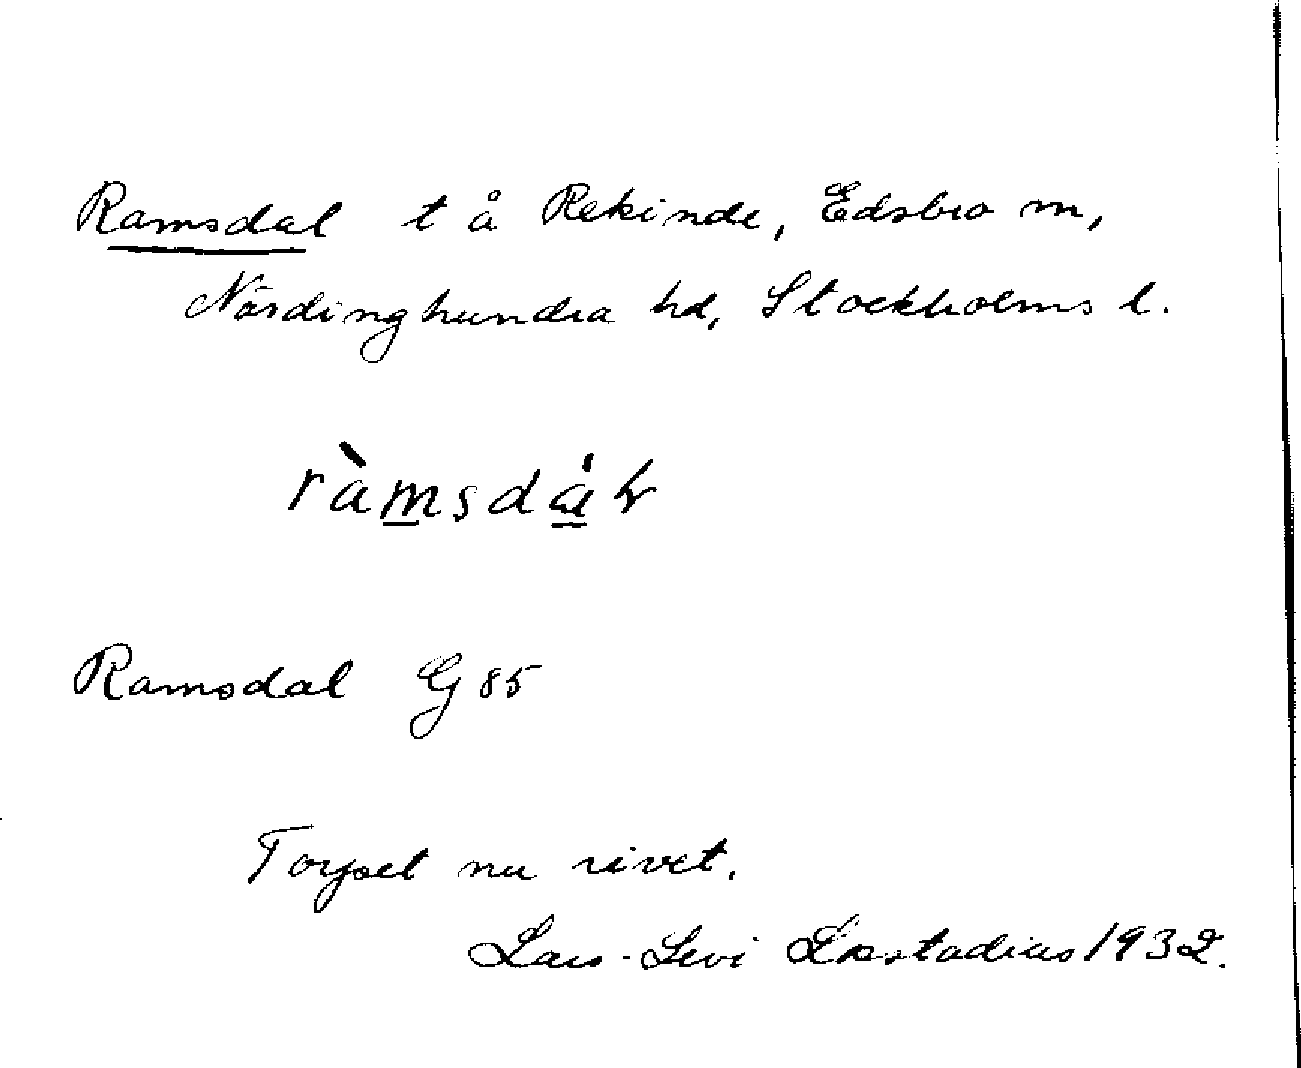 Ramsdal t å Rekinde, Edsbro sn,
Närdinghundra hd, Stockholms l.
ràmsda̍ɫ
Ramsdal G 85
Torpet nu rivet.
Lars-Levi Læstadius 1932.